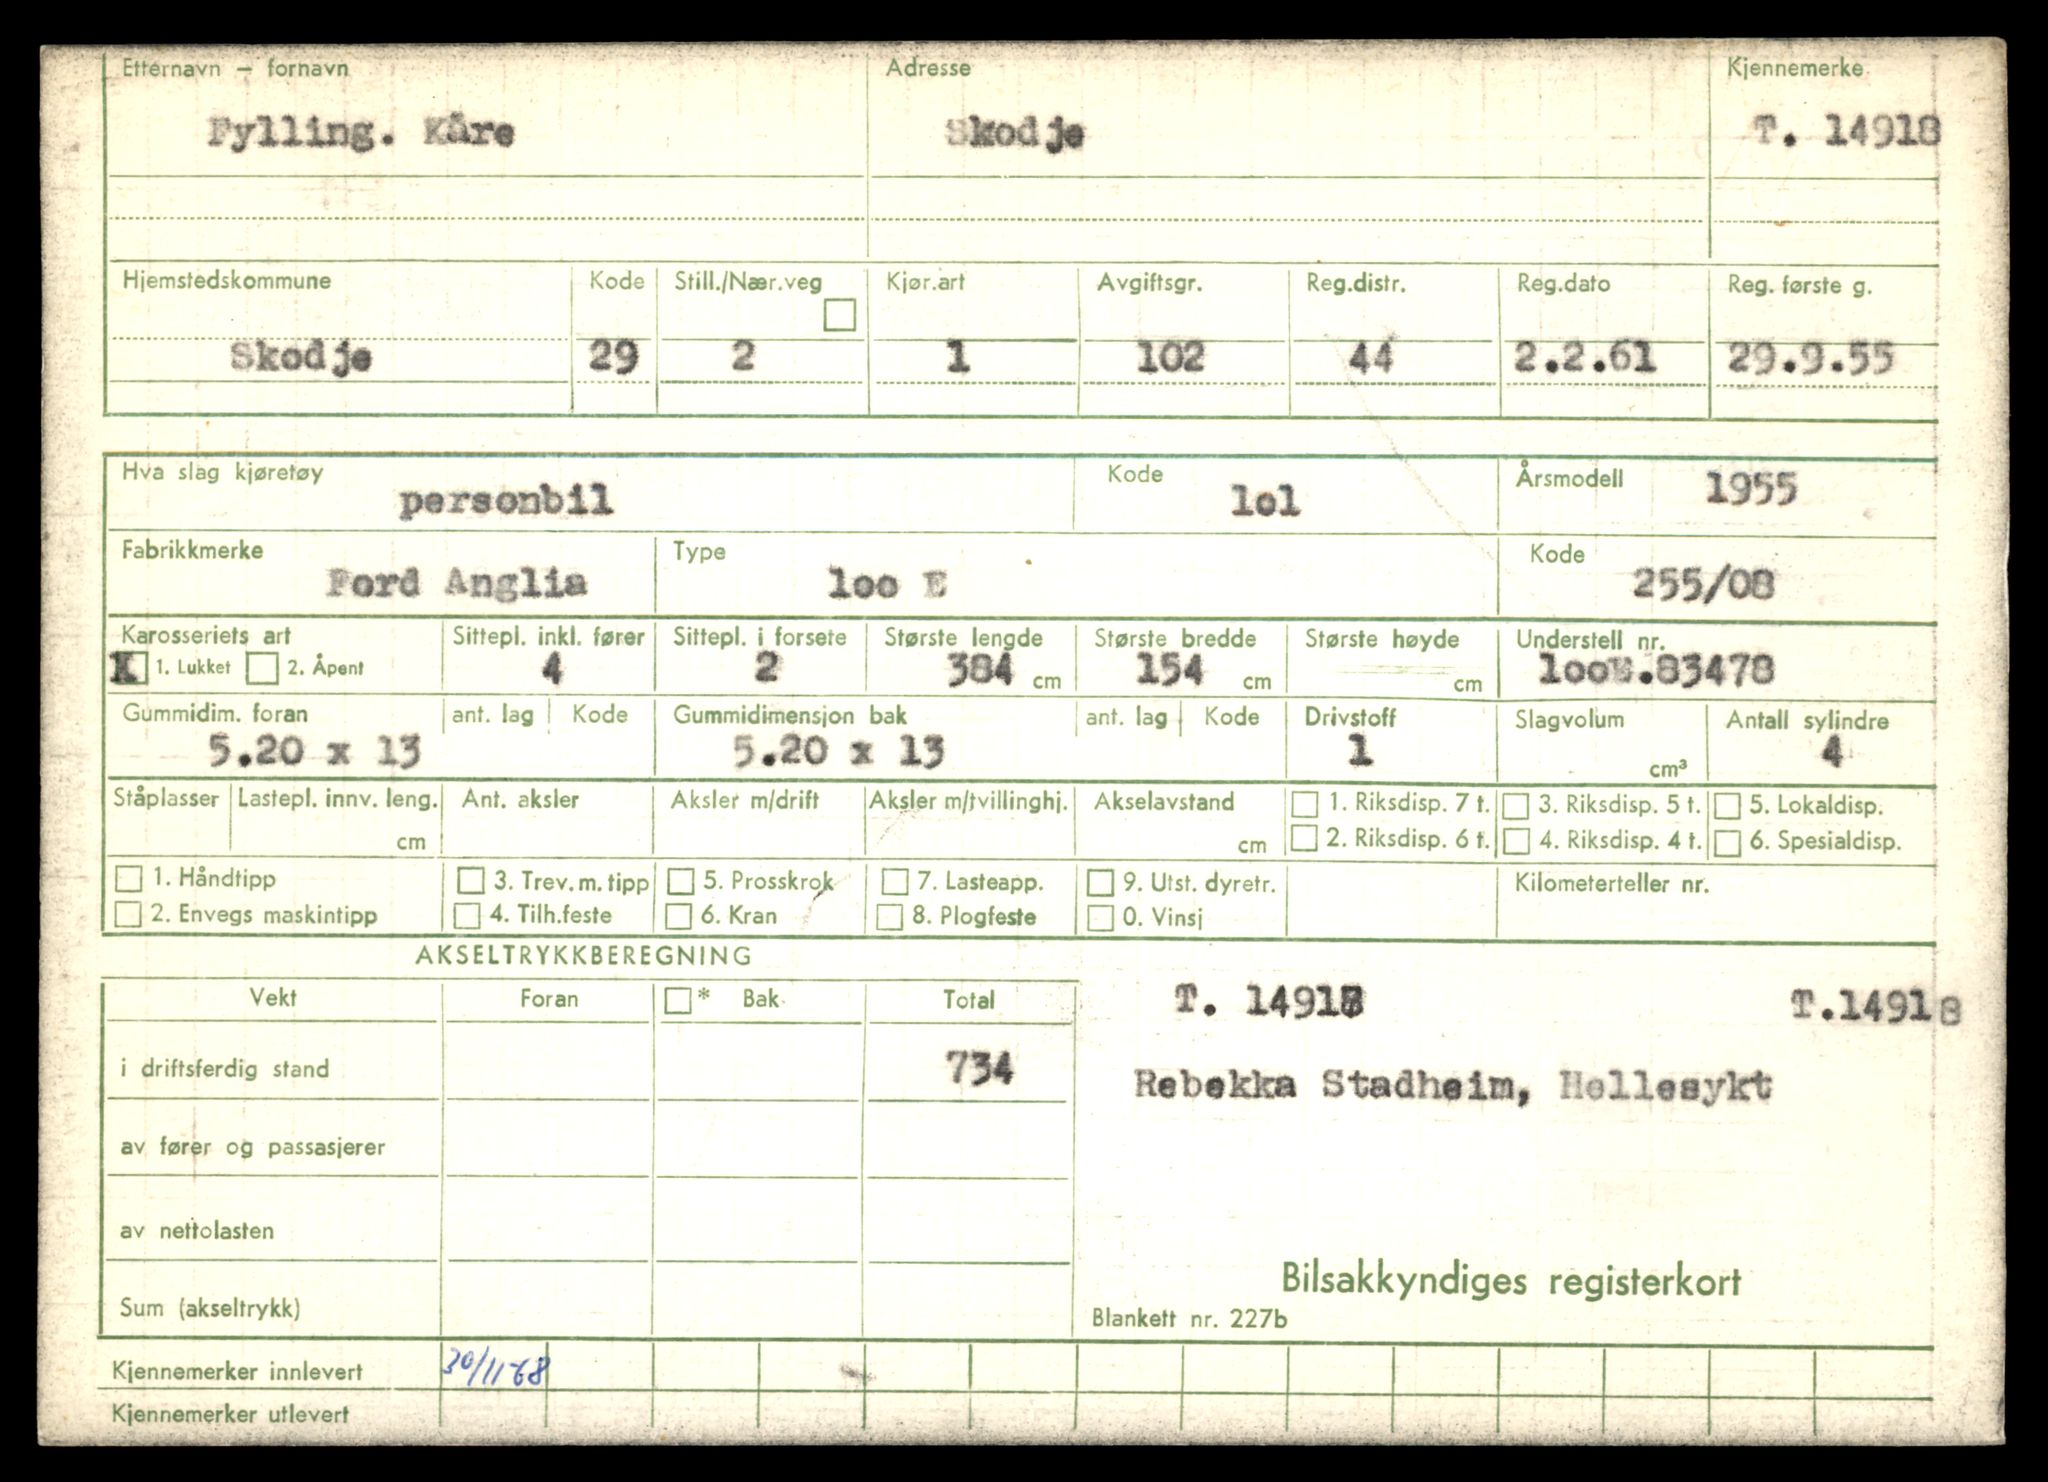 Etternavn – fornavn Adresse Kjennemerke
Fylling. Kåre Skodje T. 14918
Hjemstedskommune Kode Still./Nær.veg Kjør.art Avgiftsgr. Reg.distr. Reg.dato Reg. første g.
Skodje 29 2 1 102 44 2.2.61 29.9.55
Hva slag kjøretøy Kode Årsmodell
personbil lol 1955
Fabrikkmerke Type Kode
Ford Anglia loo E 255/08
Karosseriets art Sittepl. inkl. fører Sittepl. i forsete Største lengde Største bredde Største høyde Understell nr.
X 1. Lukket 2. Åpent 4 2 384 cm 154 cm cm looE.83478
Gummidim. foran ant. lag Kode Gummidimensjon bak ant. lag Kode Drivstoff Slagvolum Antall sylindre
5.20 x 13 5.20 x 13 1 cm³ 4
Ståplasser Lastepl. innv. leng. Ant. aksler Aksler m/drift Aksler m/tvillinghj. Akselavstand 1. Riksdisp. 7 t. 3. Riksdisp. 5 t. 5. Lokaldisp.
cm cm 2. Riksdisp. 6 t. 4. Riksdisp. 4 t. 6. Spesialdisp.
1. Håndtipp 3. Trev. m. tipp 5. Prosskrok 7. Lasteapp. 9. Utst. dyretr. Kilometerteller nr.
2. Envegs maskintipp 4. Tilh.feste 6. Kran 8. Plogfeste 0. Vinsj
AKSELTRYKKBEREGNING
Vekt Foran * Bak Total T. 14918 T.14918
i driftsferdig stand 734
Rebekka Stadheim, Hellesykt
av fører og passasjerer
av nettolasten
Bilsakkyndiges registerkort
Sum (akseltrykk) Blankett nr. 227b
Kjennemerker innlevert 30/11-68
Kjennemerker utlevert